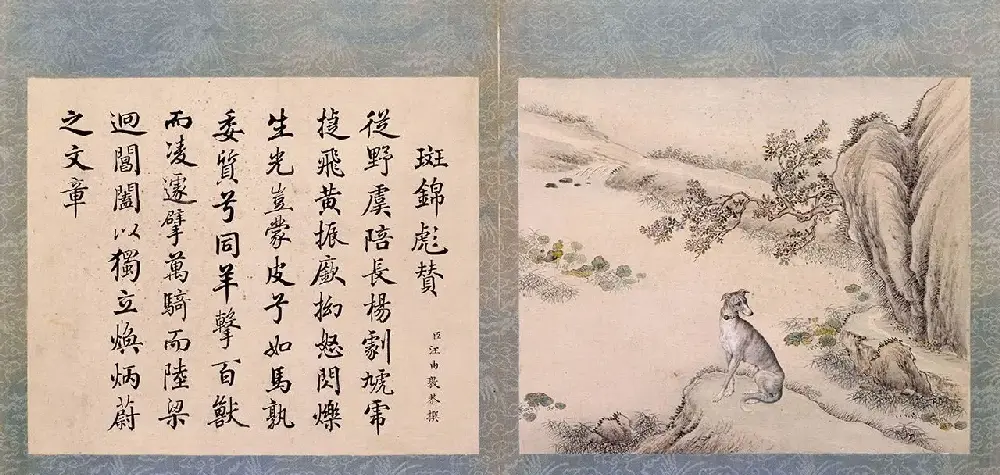 斑錦彪贊
臣汪由敦恭撰
從野虞陪長楊劇虓虎
捷飛黄振厥拗怒閃爍
生光豈蒙皮兮如馬孰
委質兮同羊擊百獸
而凌遽擘萬騎而陸梁
迴閶闔以獨立煥炳蔚
之文章